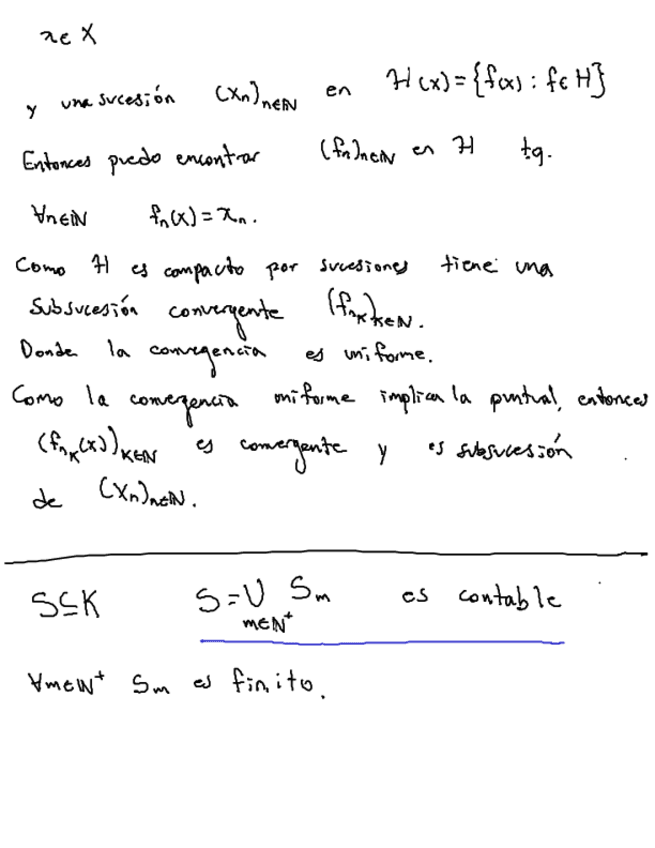 x ∈ X
y una sucesión (xₙ)ₙ∈ℕ en ℋ(x) = {f(x) : f ∈ H}
Entonces puedo encontrar (fₙ)ₙ∈ℕ en ℋ tq.
∀n∈ℕ fₙ(x) = xₙ.
Como ℋ es compacto por sucesiones tiene una
subsucesión convergente (f_{n_K})_{K∈ℕ}.
Donde la convegencia es uniforme.
Como la convergencia uniforme implica la puntual, entonces
(f_{n_K}(x))_{K∈ℕ} es convergente y es subsucesión
de (xₙ)ₙ∈ℕ.
S ⊆ K S = ∪_{m∈ℕ⁺} Sₘ es contable
∀m∈ℕ⁺ Sₘ es finito.